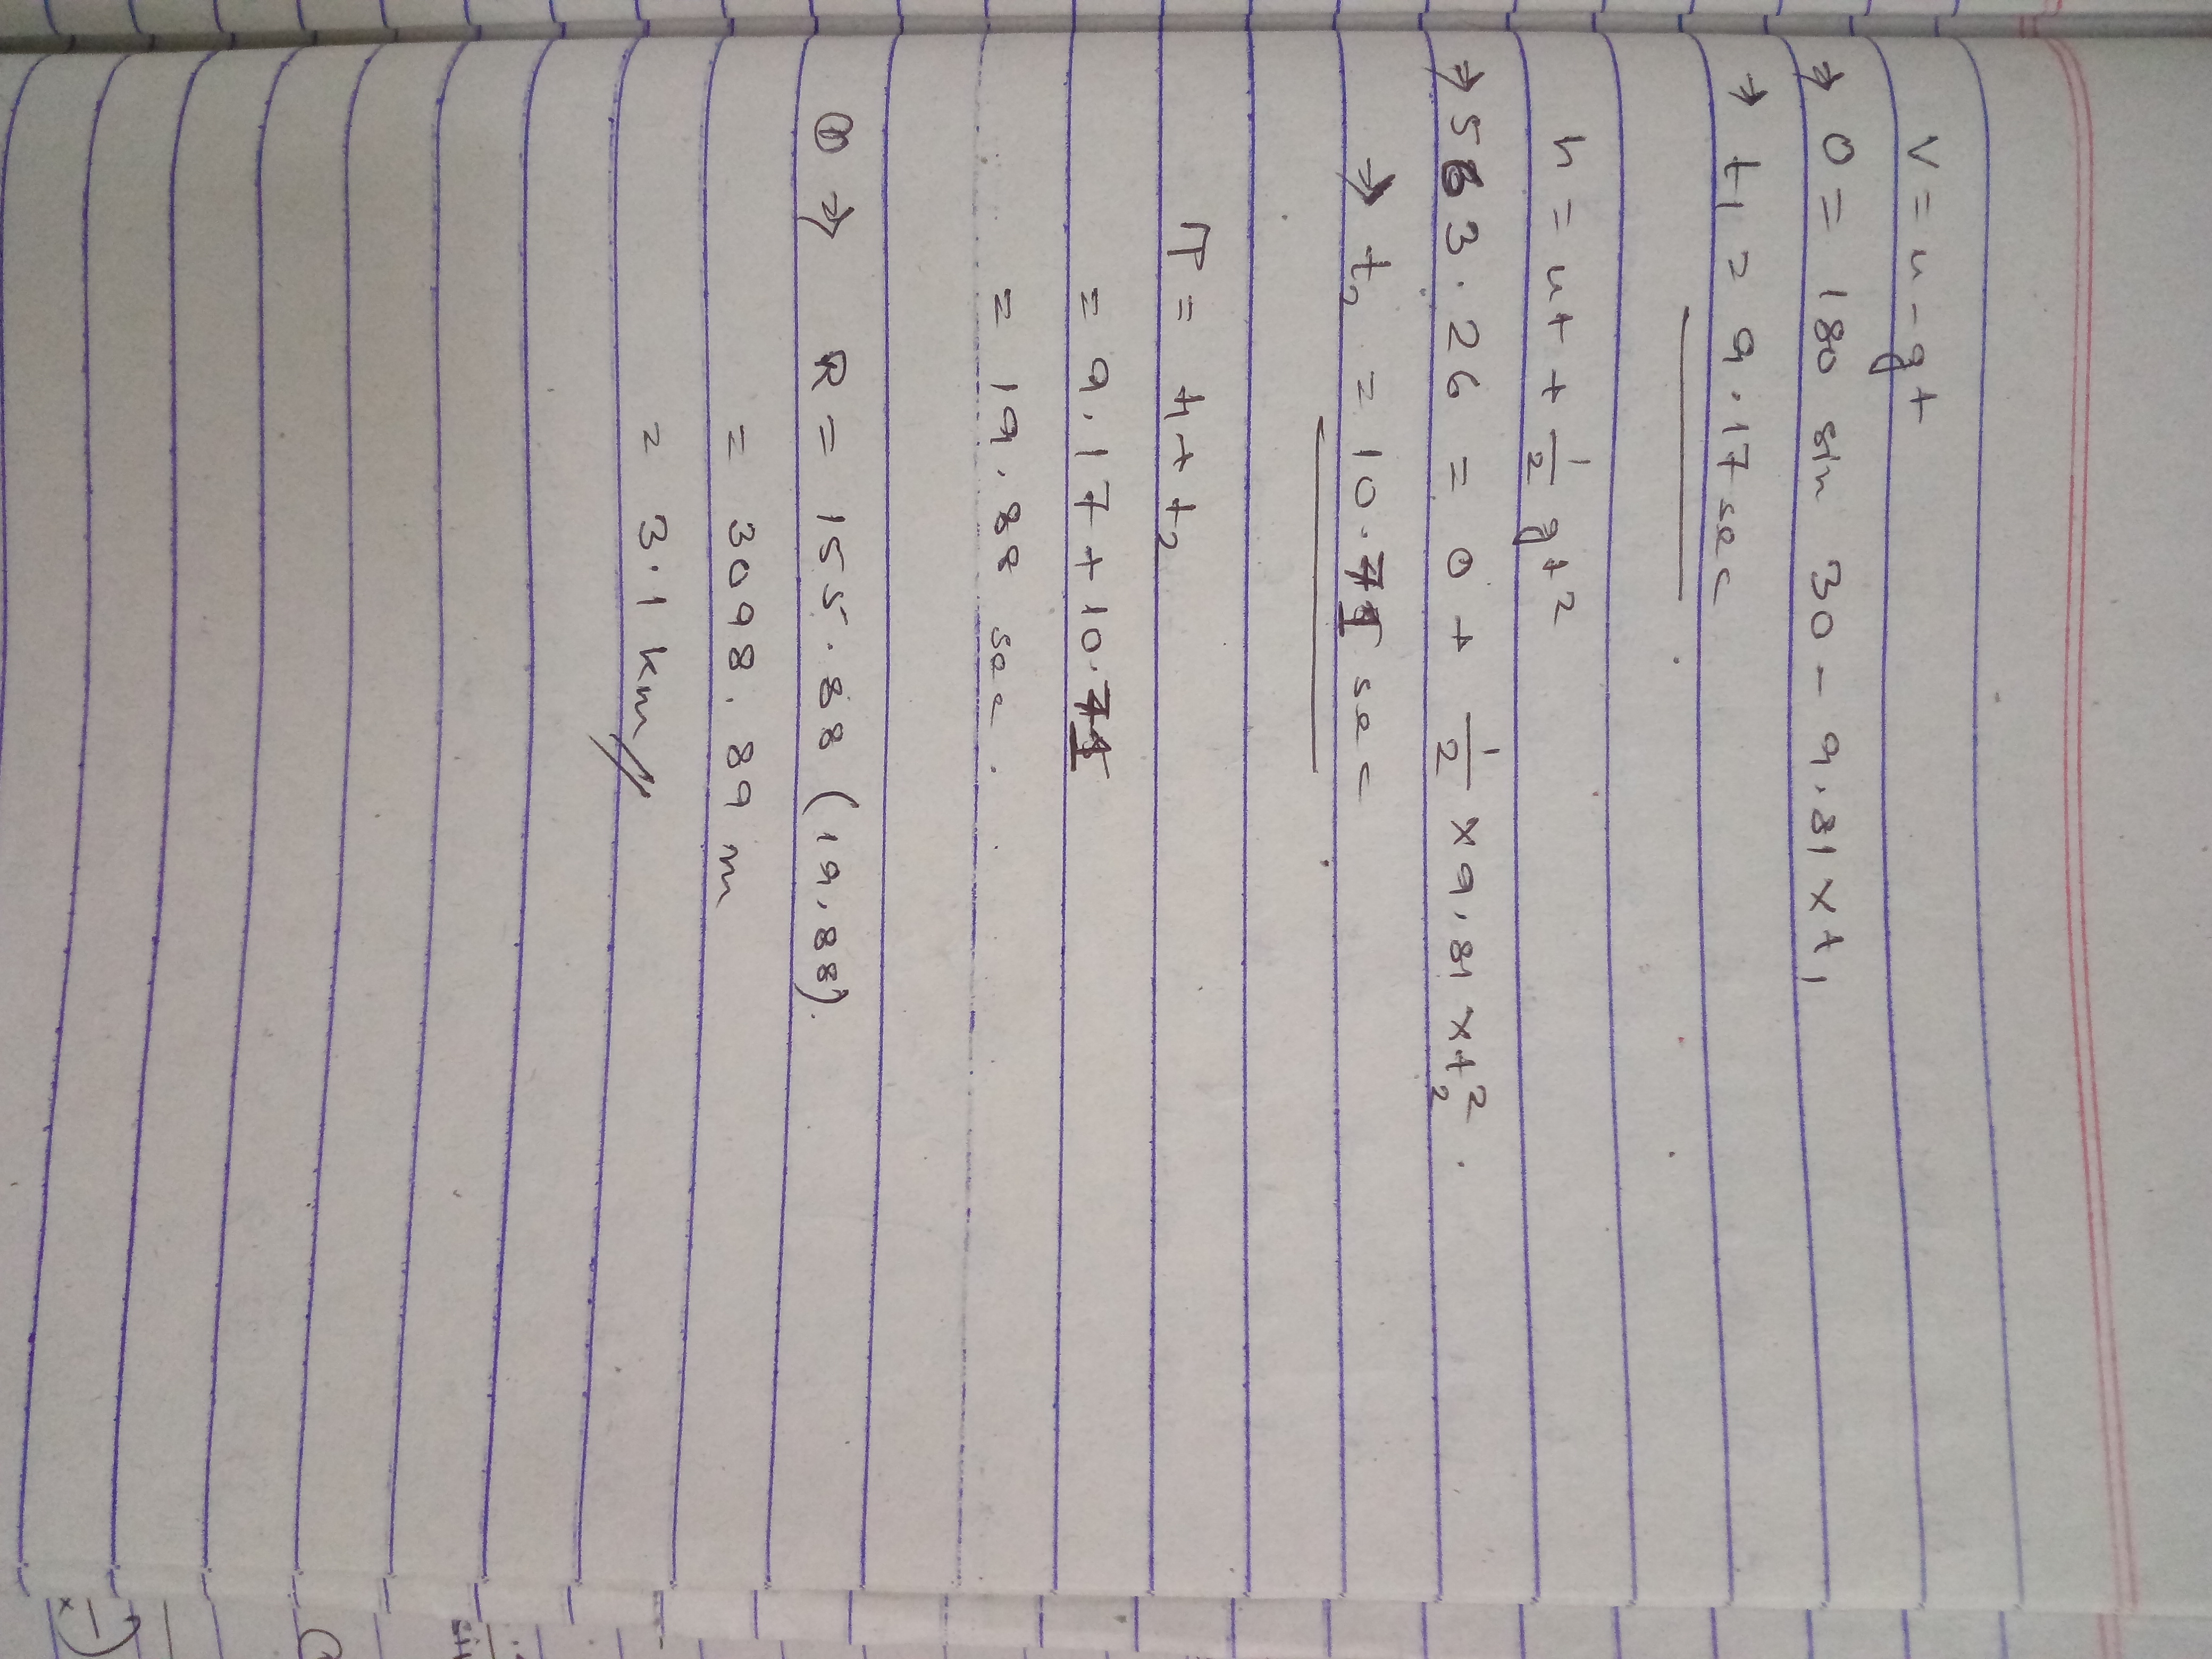 V = u - gt
⇒ 0 = 180 sin 30 - 9.81 × t₁
→ t₁ = 9.17 sec
h = ut + 1/2 gt²
⇒ 563.26 = 0 + 1/2 × 9.81 × t₂².
⇒ t₂ = 10.71 sec
T = t₁ + t₂
= 9.17 + 10.71
= 19.88 sec.
① ⇒ R = 155.88 (19.88).
= 3098.89 m
= 3.1 km //